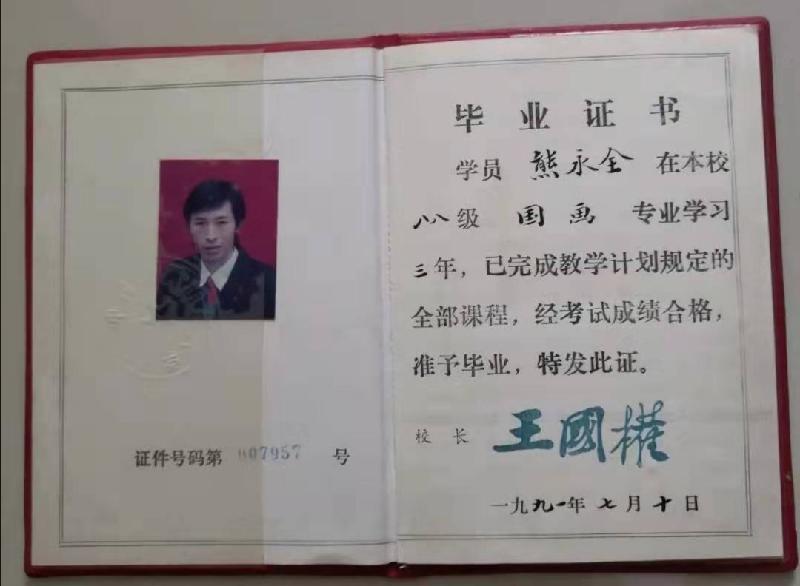 证件号码第 007957 号
毕业证书
学员 熊永全 在本校
八八级 国画 专业学习
三年，已完成教学计划规定的
全部课程，经考试成绩合格，
准予毕业，特发此证。
校长 王國權
一九九一年七月十日